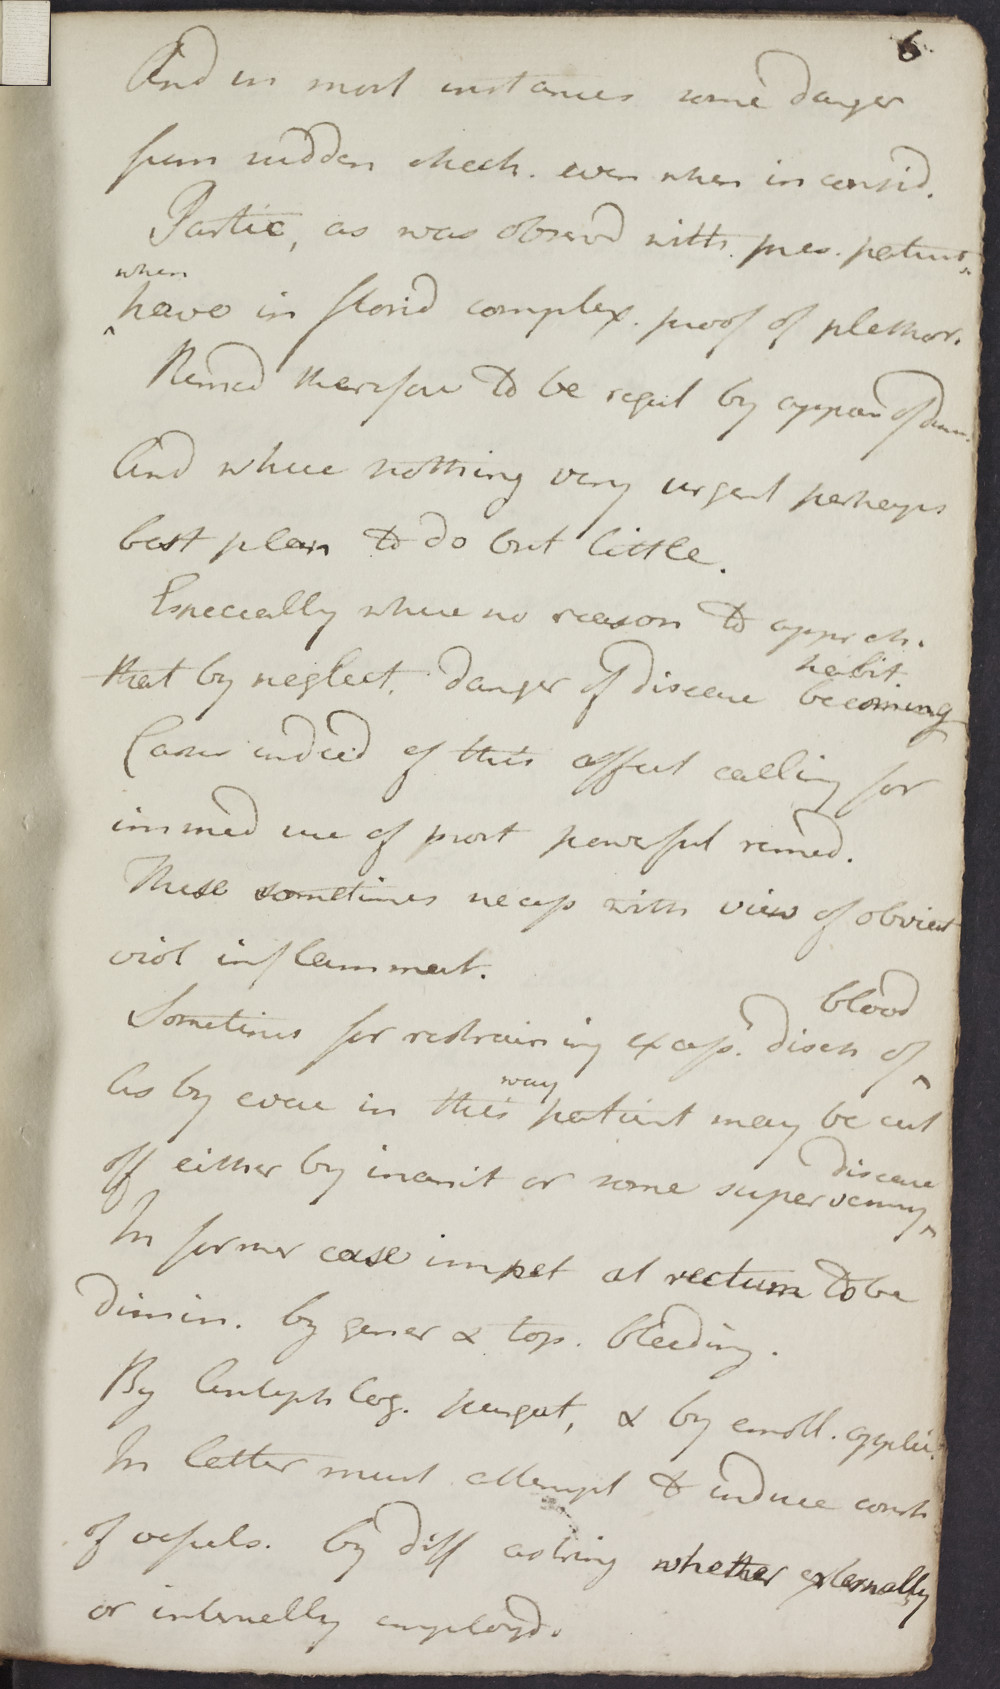 6
And in most instances some danger
from sudden check. even when inconsid.
Partic, as was observd with. pres. patient.
when
^ have in florid complex. proof of plethor.
Remed therefore to be regul by appar of
And where nothing very urgent perhaps
best plan to do but little.
Especially where no reason to appreh.
habit
that by neglect, danger of disease becoming
Cases indeed of this affect calling for
immed use of most powerful remed.
These sometimes necess with view of obviat
viol inflammat.
blood
Sometimes for restraining excess. disch of ^
way
As by evac in this patient may be cut
disease
off either by inanit or some supervening ^
In former case impet at rectum to be
dimin. by gener & top. bleeding.
By Antiphlog. purgat, & by emoll. applic.
In latter must attempt to induce constr
of vessels. by diff astring whether externally
or internally employd.